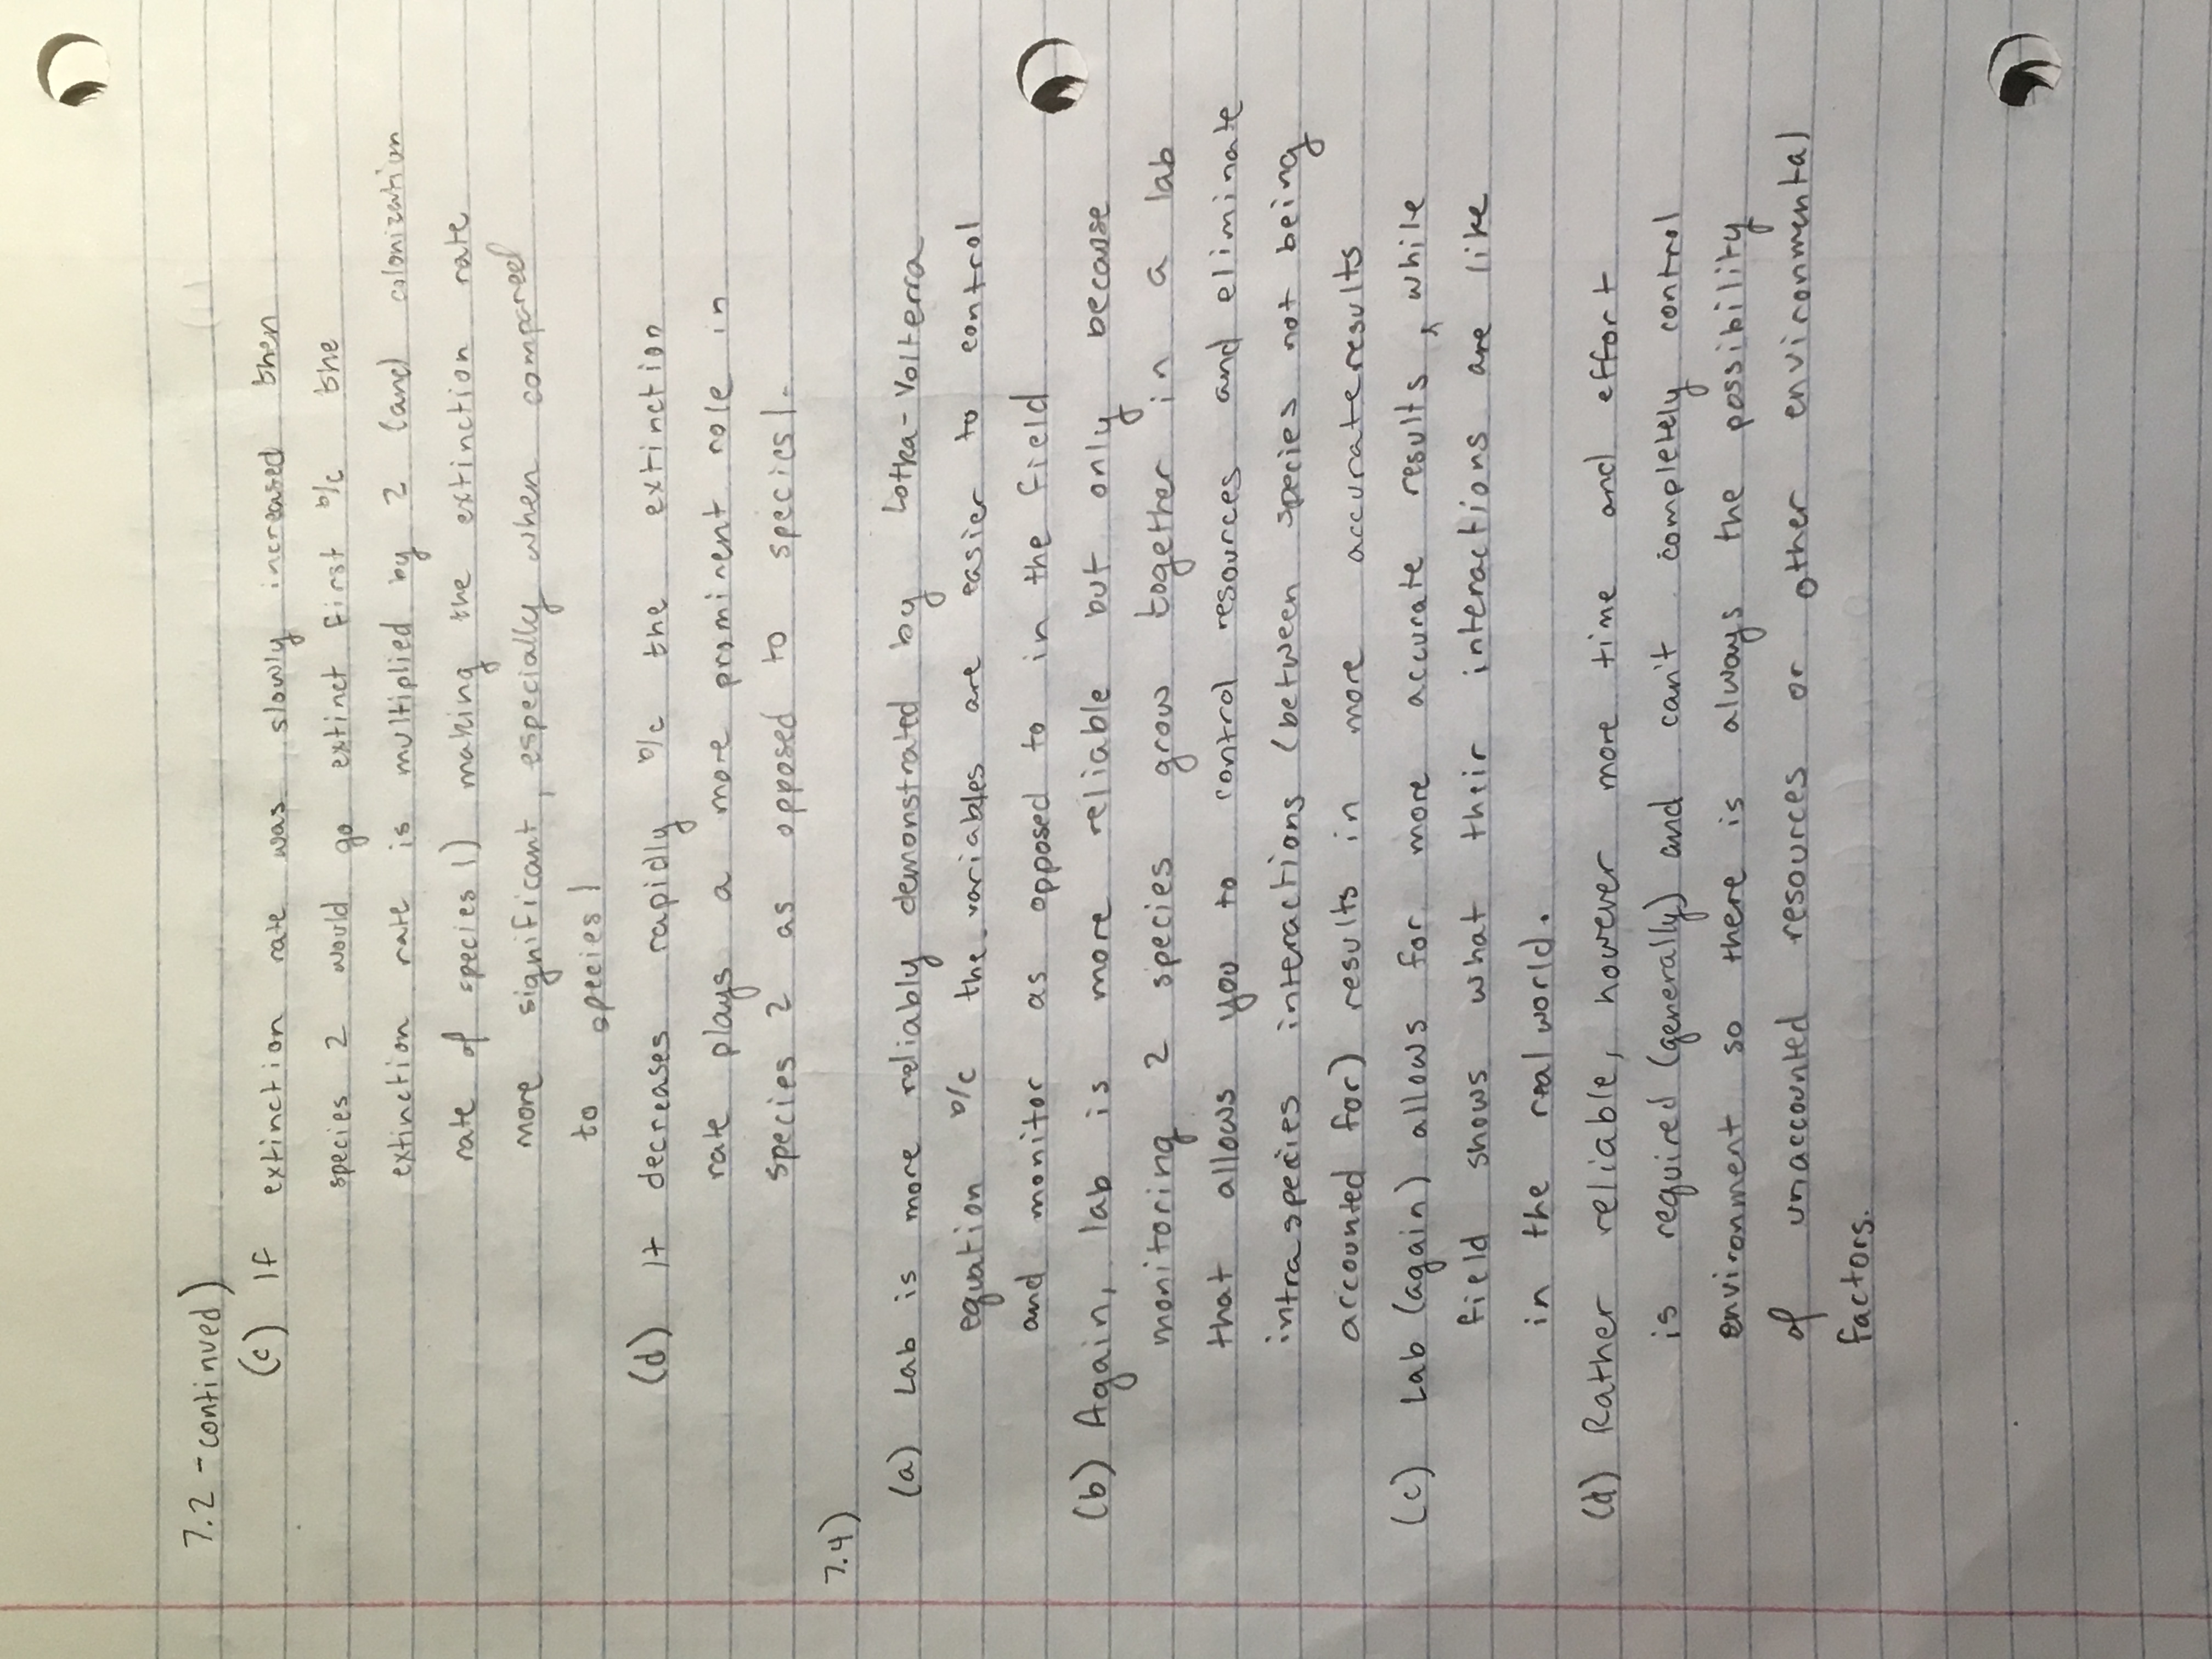 7.2 - continued)
(c) If extinction rate was slowly increased then
species 2 would go extinct first b/c the
extinction rate is multiplied by 2 (and colonization
rate of species 1) making the extinction rate
more significant, especially when compared
to species 1
(d) It decreases rapidly b/c the extinction
rate plays a more prominent role in
species 2 as opposed to species 1.
7.4)
(a) Lab is more reliably demonstrated by Lotka-Volterra
equation b/c the variables are easier to control
and monitor as opposed to in the field
(b) Again, lab is more reliable but only because
monitoring 2 species grow together in a lab
that allows you to control resources and eliminate
intraspecies interactions (between species not being
accounted for) results in more accurate results
(c) Lab (again) allows for more accurate results, while
field shows what their interactions are like
in the real world.
(d) Rather reliable, however more time and effort
is required (generally) and can't completely control
environment so there is always the possibility
of unaccounted resources or other environmental
factors.